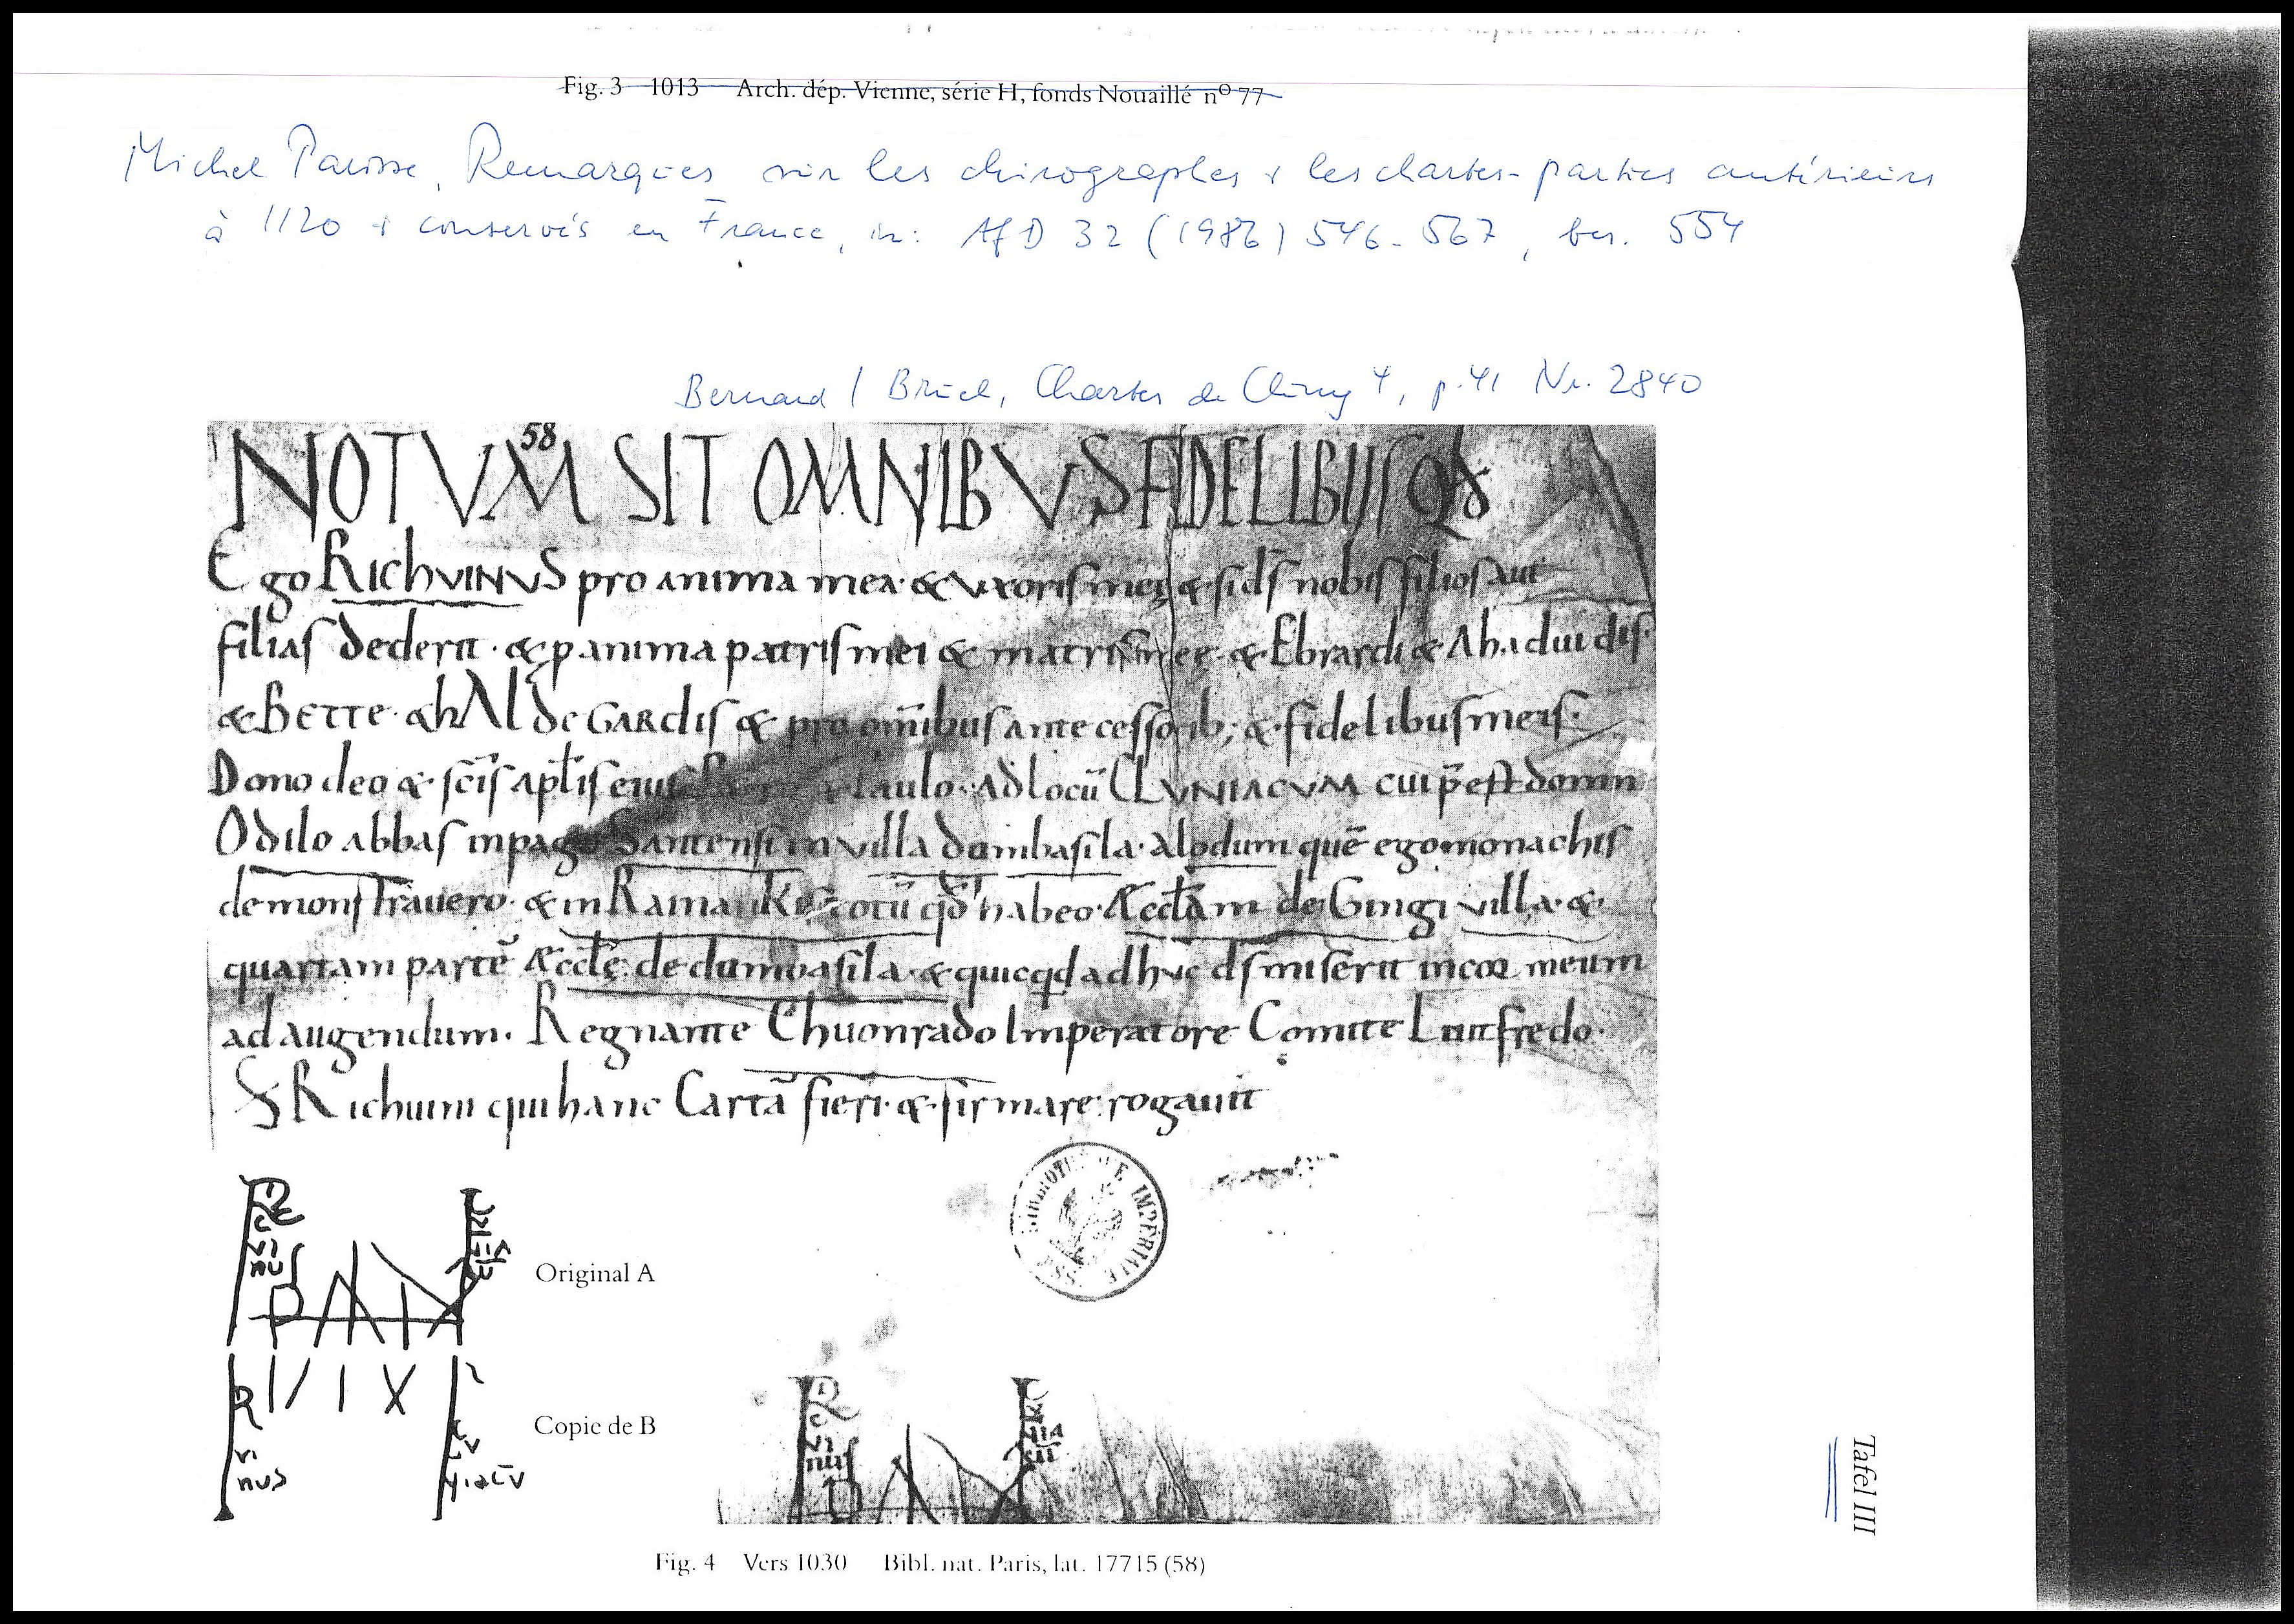 Fig. 3 1013 Arch. dép. Vienne, série H, fonds Nouaillé nº 77
Michel Parisse, Remarques sur les chirographes & les chartes-parties antérieurs
à 1120 & conservés en France, in: AfD 32 (1986) 546-567, bes. 554
Bernard / Bruel, Chartes de Cluny 4, p. 41 Nr. 2840
58
NOTVM SIT OMNIBVS FIDELIBUS Qđ
Ego RichVINVS pro anima mea· & uxoris meę & si d̄s nobis filios aut
filias dederit· & p anima patris mei & matris meę· & Ebrardi & Ahaduidis·
& BETTE· & hAldeGARdis & pro om̄ibus antecessorib; & fidelibus meis·
Dono deo & sc̄is aplis̄ eius paulo· Ad locū CLVNIACVM cui p̄est domn
Odilo abbas in pago Santensi in villa dombasila· alodum quē ego monachis
demonstravero· & in Ramau totū qđ habeo· Æcclam de Gingi villa· &
quartam partē Æcclę de dumbasila· & quicqd adhuc d̄s miserit in cor meum
ad augendum· Regnante Chuonrado Imperatore Comite Luitfredo·
S Richuini qui hanc Cartā fieri· & firmare· rogauit
BIBLIOTHÈQUE IMPÉRIALE MSS
Original A
Copie de B
R
vi
nus
Fig. 4 Vers 1030 Bibl. nat. Paris, lat. 17715 (58)
Tafel III